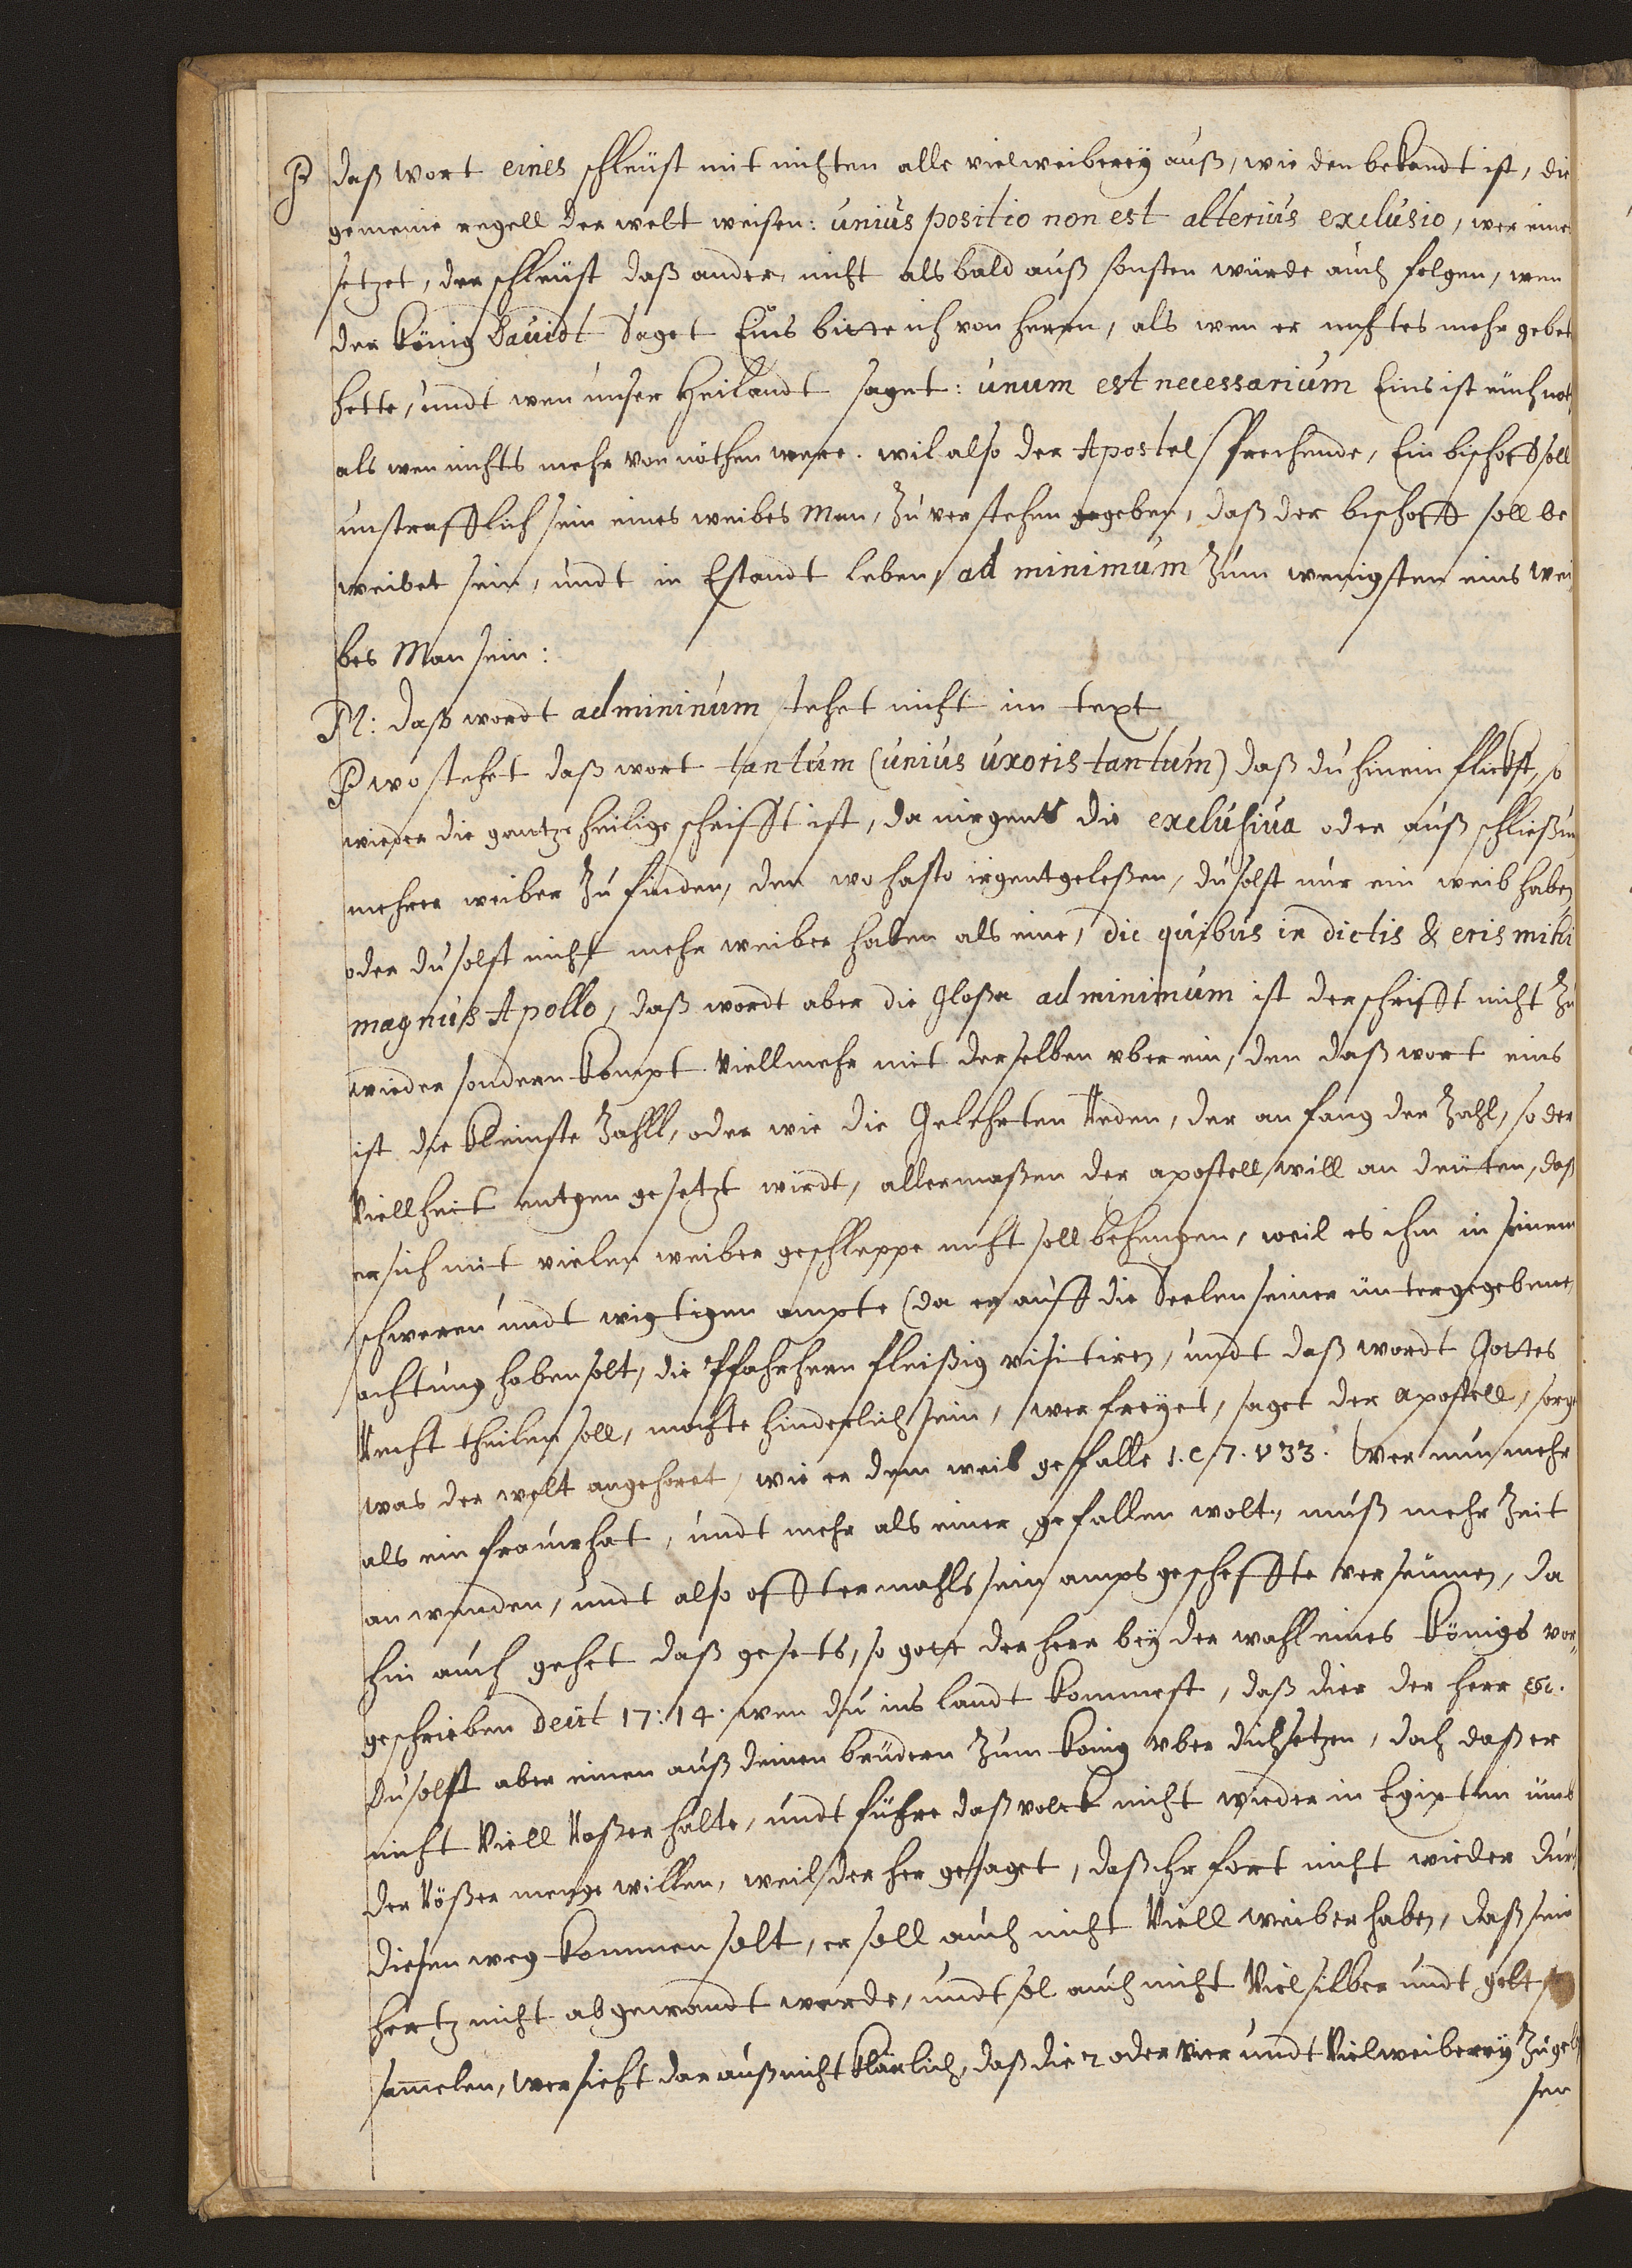 P daß wort eines schleüst mit nichten alle vielweiberey auß, wie den bekandt ist, die
gemeine regell der welt weisen: unius positio non est alterius exclusio, wer eine
setzet, der schleüst daß ander nicht als bald auß sonsten würde auch folgen, wen
der König Dauidt Saget Eins bitte ich von herrn, als wen er nichtes mehr gebet
hette, undt wen unser Heilandt saget: unum est necessarium Eins ist euch not
als wen nichts mehr von nöthen were. wil also der Apostel sprechende, Ein bischoff soll
unstrafflich sein eines weibes Man, zu verstehen gegeben, daß der bischoff soll be
weibet sein, undt in Estandt leben, ad minimum zum wenigsten eins wei
bes Man sein:
M: daß wordt ad mininum stehet nicht im text
P wo stehet daß wort tantum (unius uxoris tantum) daß du hinein flickst, so
wieder die gantze heilige schrifft ist, da nirgents die exclusiua oder auß schließun
mehrer weiber zu finden, den wo hasto irgent geleßen, du solst nur ein weib haben
oder du solst nicht mehr weiber haben als eine, dic quibus in dictis & eris mihi
magnus Apollo, daß wordt aber die Gloßa ad minimum ist der schrifft nicht zu
wieder sondern kompt viellmehr mit derselben vber ein, den daß wort eins
ist die kleinste zahll, oder wie die Gelehrten Reden, der anfang der zahl, so der
Viellheit entgen gesetzt wirdt, allermaßen der apostell will an deuten, daß
er sich mit vielen weiber geschleppe nicht soll behengen, weil es ihm in seinem
schweren undt wigtigen ampte (da er auff die Seelen seiner untergegebene
achtung haben solt, die Pfahrhern fleißig visitiren, undt daß wordt Gottes
Recht theilen soll, mochte hinderlich sein, wer freyet, saget der apostell, sorge
was der welt angehoret, wie er dem weib gefalle 1. C 7. v 33. Wer nun mehr
als ein frauw hat, undt mehr als einer gefallen wolt, muß mehr zeit
anwenden, undt also offtermahls sein amps gescheffte verseumen, da
hin auch gehet daß gesets, so gott der herr bey der wahl eines Königs vor
geschrieben Deut 17: 14. wen du ins landt kommest, daß dier der herr etc.
Du solst aber einen auß deinen brüdern zum konig vber dich setzen, doch daß er
nicht Viell Roßer halte, undt führe daß volck nicht wieder in Egipten umb
der Rößer menge willen, weil der her gesaget, daß ihr fort nicht wieder dur
diesen weg kommen solt, er soll auch nicht Viell weiber haben, daß sein
hertz nicht abgewandt werde, undt sol auch nicht Viel silber undt gelt
samelen, wer sieht dar auß nicht klärlich, daß die 2 oder vier undt Vielweiberey zugel
sen